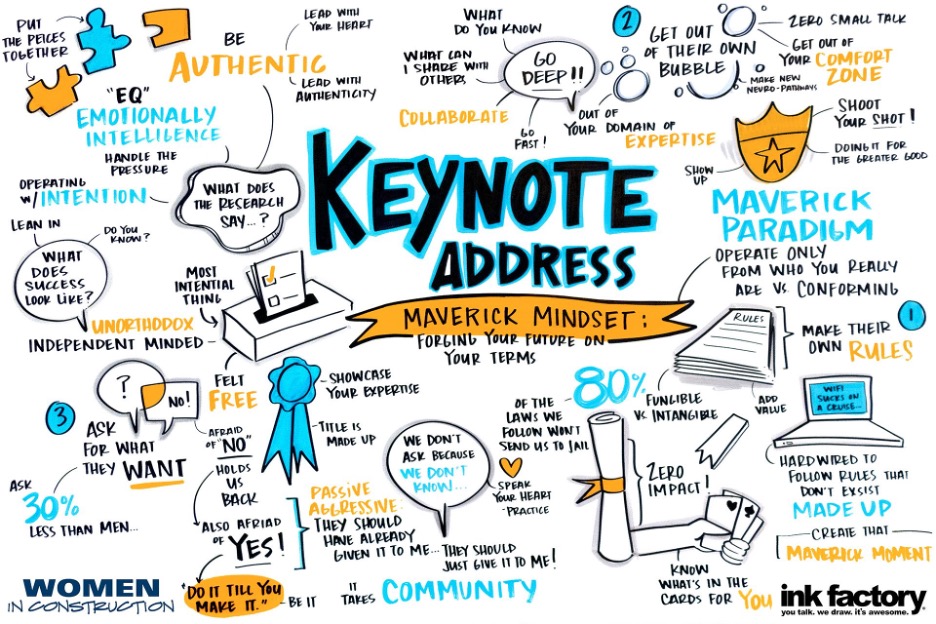 PUT
THE PEICES
TOGETHER
BE
AUTHENTIC
LEAD WITH
YOUR HEART
LEAD WITH
AUTHENTICITY
"EQ"
EMOTIONALLY
INTELLIGENCE
HANDLE THE
PRESSURE
OPERATING
W/INTENTION
WHAT DOES
THE RESEARCH
SAY...?
LEAN IN
DO YOU
KNOW?
WHAT
DOES
SUCCESS
LOOK LIKE?
MOST
INTENTIAL
THING
UNORTHODOX
INDEPENDENT MINDED
FELT
FREE
WHAT
DO YOU KNOW
WHAT CAN
I SHARE WITH
OTHERS
COLLABORATE
GO
DEEP!!
GO
FAST!
2
GET OUT
OF THEIR OWN
BUBBLE
ZERO SMALL TALK
GET OUT OF
YOUR COMFORT
ZONE
MAKE NEW
NEURO-PATHWAYS
OUT OF
YOUR DOMAIN OF
EXPERTISE
SHOOT
YOUR SHOT!
DOING IT FOR
THE GREATER GOOD
SHOW
UP
KEYNOTE
ADDRESS
MAVERICK MINDSET:
FORGING YOUR FUTURE ON
YOUR TERMS
MAVERICK
PARADIGM
OPERATE ONLY
FROM WHO YOU REALLY
ARE VS. CONFORMING
1
RULES
MAKE THEIR
OWN RULES
80%
OF THE
LAWS WE
FOLLOW WON'T
SEND US TO JAIL
FUNGIBLE
VS INTANGIBLE
ADD
VALUE
WIFI
SUCKS ON
A CRUISE...
HARDWIRED TO
FOLLOW RULES THAT
DON'T EXSIST
MADE UP
CREATE THAT
MAVERICK MOMENT
ZERO
IMPACT!
KNOW
WHAT'S IN THE
CARDS FOR YOU
SPEAK
YOUR HEART
-PRACTICE
3
?
NO!
ASK
FOR WHAT
THEY WANT
ASK
30%
LESS THAN MEN...
AFRAID
OF "NO"
HOLDS
US
BACK
ALSO AFRIAD
OF YES!
"DO IT TILL YOU
MAKE IT."
BE IT
SHOWCASE
YOUR EXPERTISE
TITLE IS
MADE UP
PASSIVE
AGGRESSIVE:
THEY SHOULD
HAVE ALREADY
GIVEN IT TO ME...
THEY SHOULD
JUST GIVE IT TO ME!
WE DON'T
ASK BECAUSE
WE DON'T
KNOW...
IT
TAKES COMMUNITY
WOMEN
IN CONSTRUCTION
ink factory
you talk. we draw. it's awesome.